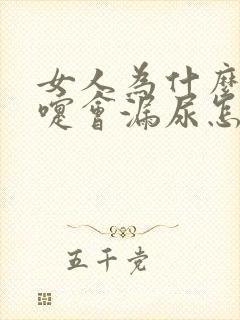 女人為什麼
嚏會漏尿怎
五千党